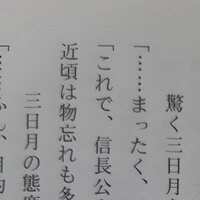 驚く三日月
「……まったく、
「これで、信長公
近頃は物忘れも多
三日月の態度
「……ふん、目的